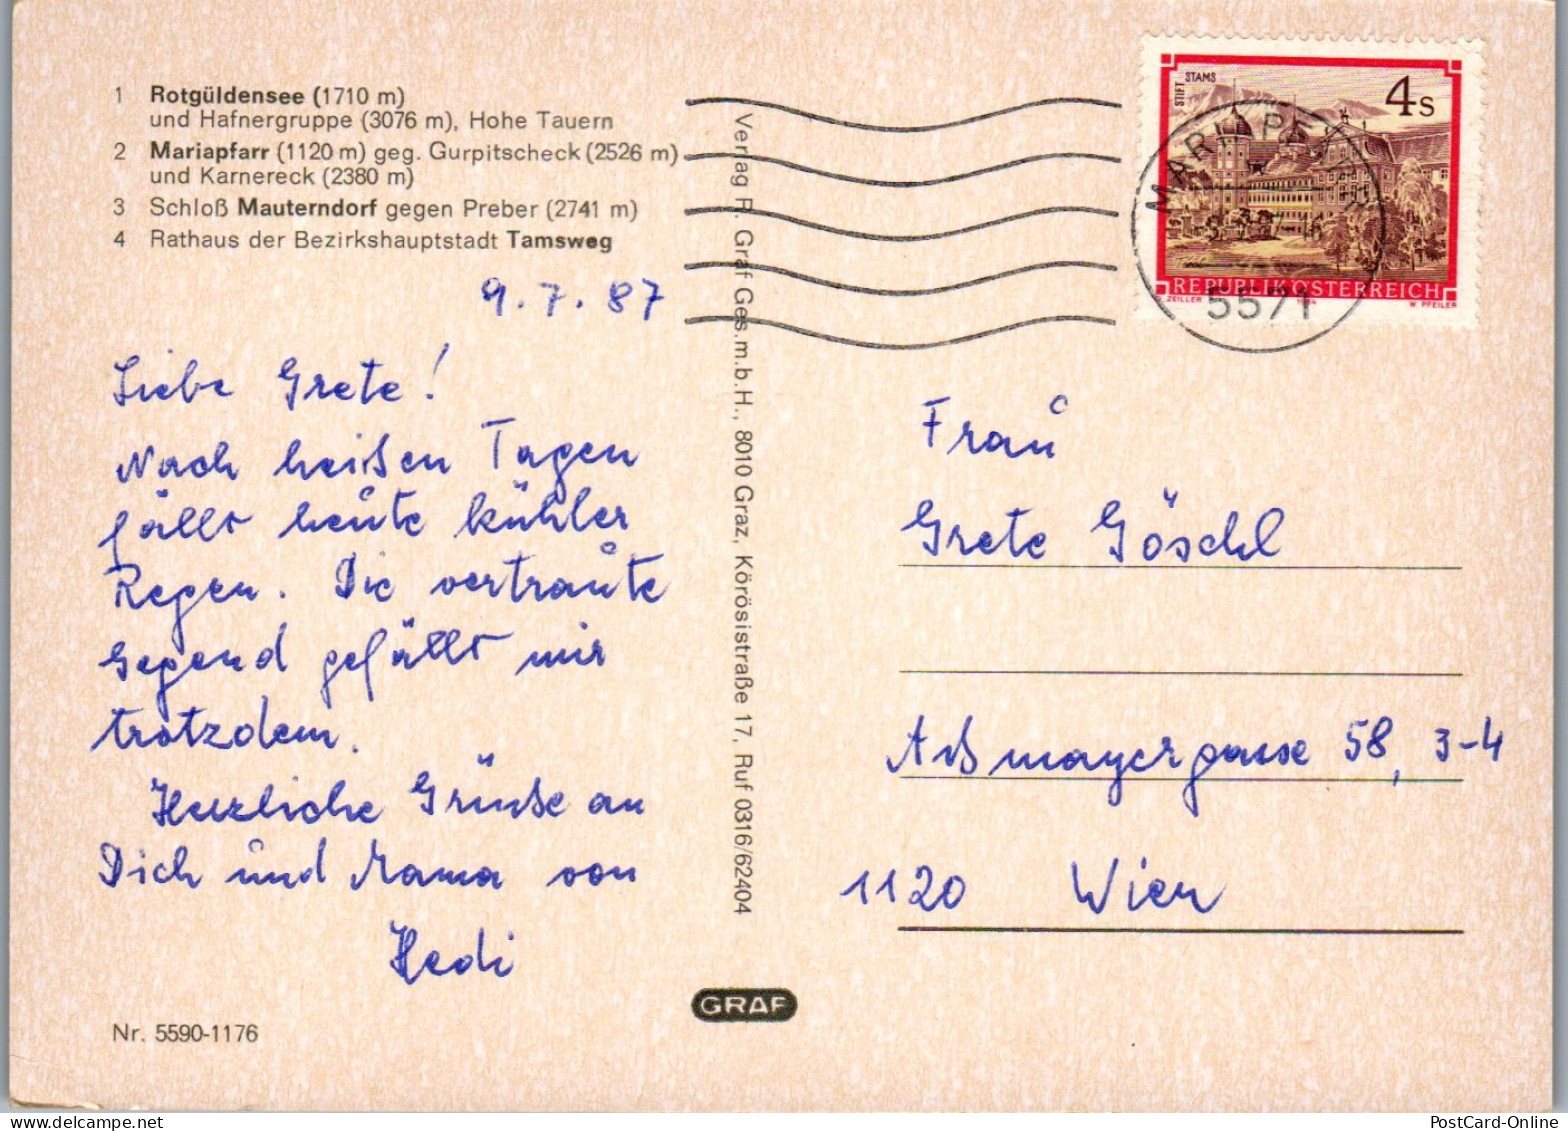 1 Rotgüldensee (1710 m)
und Hafnergruppe (3076 m), Hohe Tauern
2 Mariapfarr (1120 m) geg. Gurpitscheck (2526 m)
und Karnereck (2380 m)
3 Schloß Mauterndorf gegen Preber (2741 m)
4 Rathaus der Bezirkshauptstadt Tamsweg
9.7.87
Liebe Grete!
Nach heißen Tagen
fällt heute kühler
Regen. Die vertraute
Gegend gefällt mir
trotzdem.
Herzliche Grüße an
Dich und Mama von
Hedi
Nr. 5590-1176
Verlag R. Graf Ges.m.b.H., 8010 Graz, Körösistraße 17, Ruf 0316/62404
GRAF
STIFT STAMS
4s
REPUBLIK ÖSTERREICH
ZEILLER
W. PFEILER
5571
Frau
Grete Göschl
Aßmayergasse 58, 3-4
1120 Wien
PostCard-Online